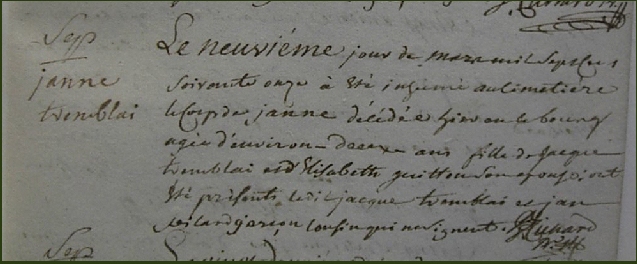 Sep
janne
tremblai
Le neuviéme jour de mars mil sept cens
soixante onze à été inhumé au cimetiere
le corp de janne décédée hier en le bourg
agée d'environ deux ans fille de jacque
tremblai et d'Elisabeth guitton son epouse ont
été présents ledit jacque tremblai et jan
garçon cousin qui ne signent.
Sep